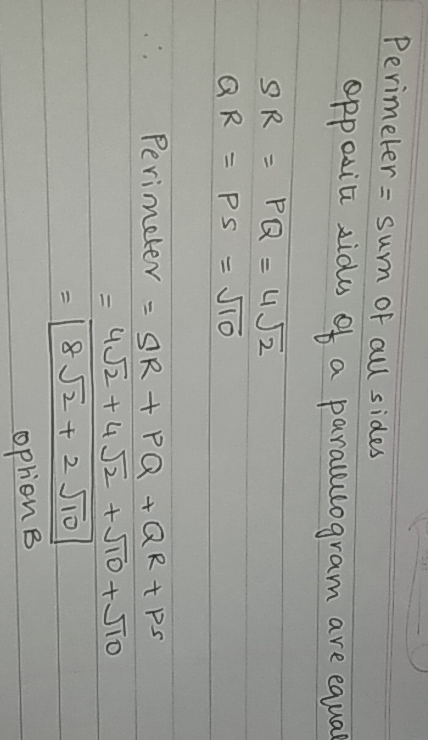 Perimeter = sum of all sides
opposite sides of a parallelogram are equal
SR = PQ = 4√2
QR = PS = √10
∴ Perimeter = SR + PQ + QR + PS
= 4√2 + 4√2 + √10 + √10
= 8√2 + 2√10
option B